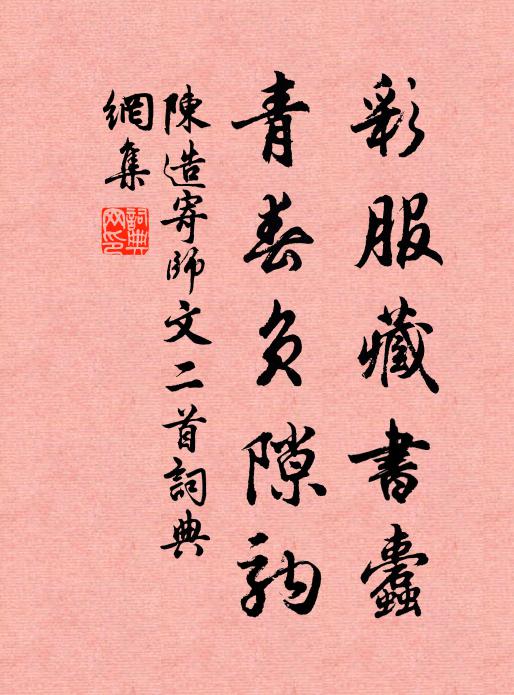 彩服藏書蠹
青春負隙駒
陳造寄師文二首詞典
網集
詞典网印